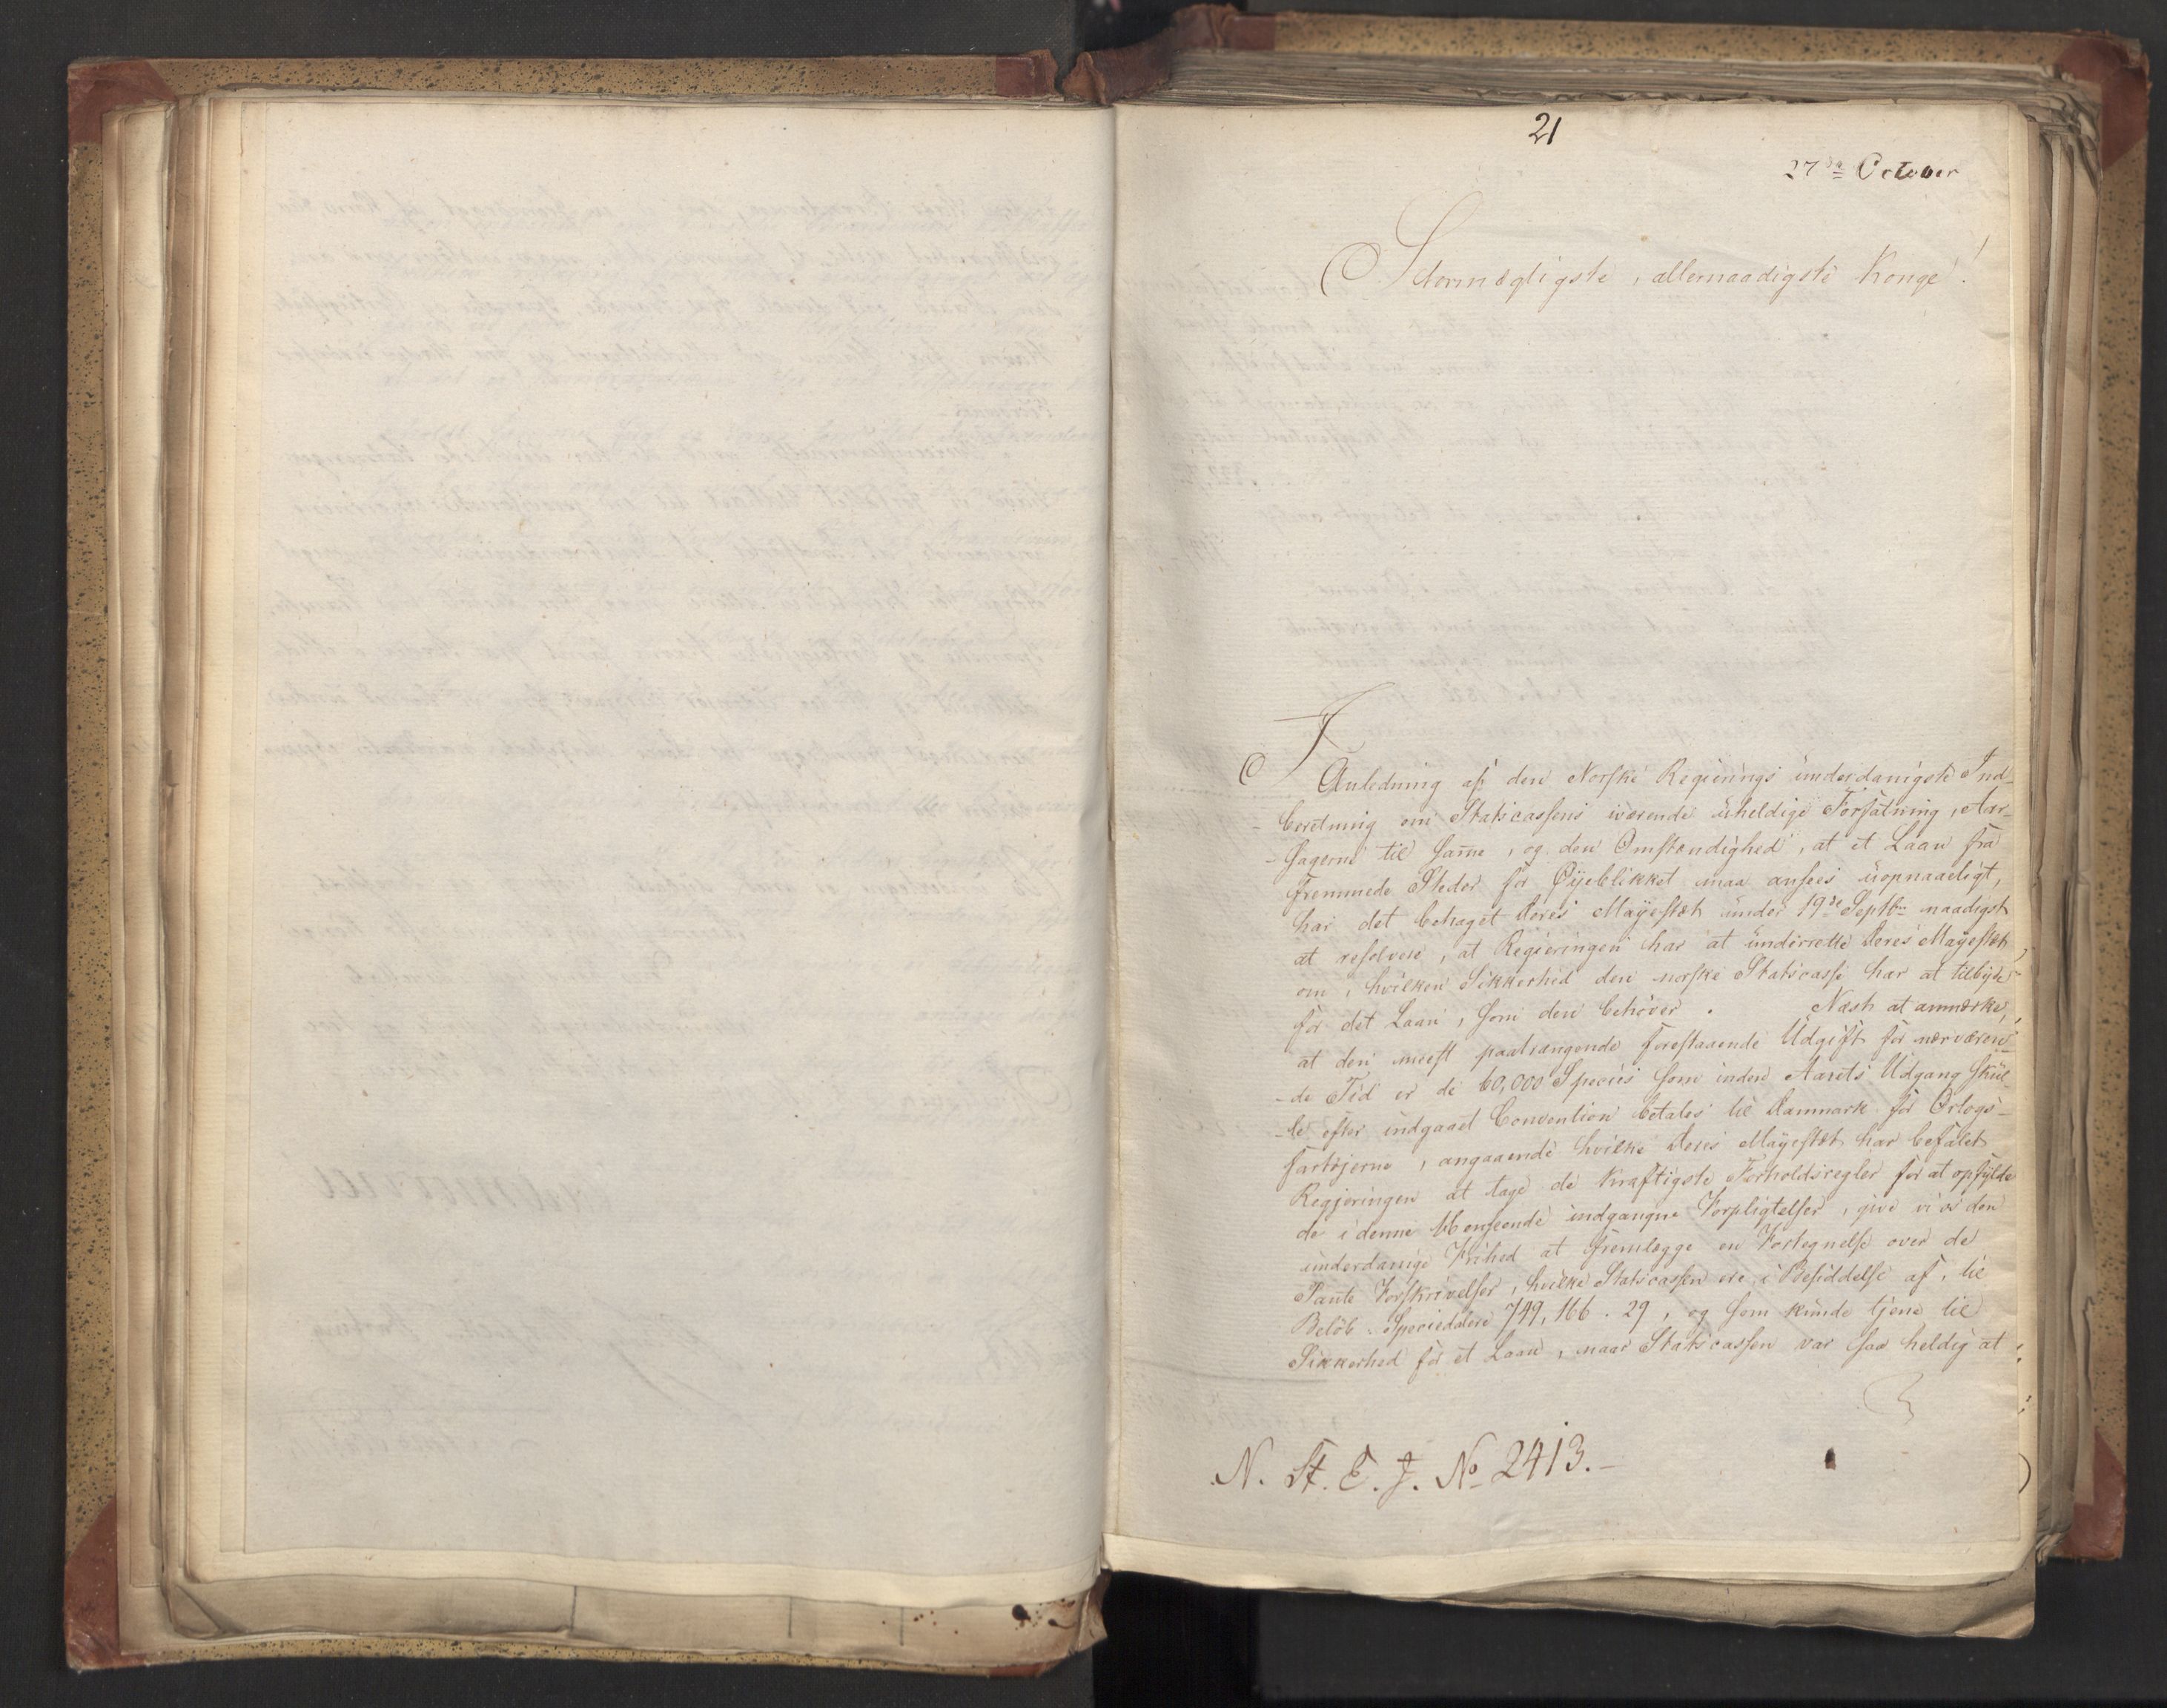 21
27de October
Stormægtigste, allernaadigste Konge!
I Anledning af den Norske Regierings underdanigste Ind-
beretning om Statscassens værende uheldige Forfatning, Aar-
-sagerne til samme, og den Omstændighed, at et Laan fra
fremmede Steder for Øyeblikket maa ansees uopnaaeligt,
har det behaget Deres Mayestæt under 19de Septbr naadigst
at resolvere, at Regieringen har at underrette Deres Mayestæt
om, hvilken Sikkerhed den norske Statscasse har at tilbyde
for det Laan, som den behøver. Næst at anmærke,
at den meest paatrængende forestaaende Udgift for nærværen-
-de Tid er de 60,000 Species som inden Aarets Udgang skul-
-le efter indgaaet Convention betales til Danmark for Orlogs-
fartøjerne, angaaende hvilke Deres Mayestæt har befalet
Regjeringen at tage de kraftigste Forholdsregler for at opfylde
de i denne Henseende indgangne Forpligtelser, give vi os den
underdanige Frihed at fremlægge en Fortegnelse over de
Pante Forskrivelser, hvilke Statscassen ere i Besiddelse af, til
Beløb Speciedalere 749,166. 29, og som kunde tjene til
Sikkerhed for et Laan, naar Statscassen var saa heldig at
N. St. E. J. No 2413.-